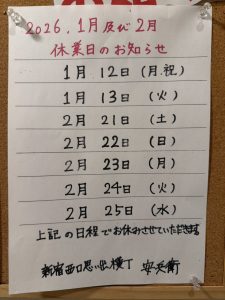 2026.1月及び2月
休業日のお知らせ
1月 12日 (月.祝)
1月 13日 (火)
2月 21日 (土)
2月 22日 (日)
2月 23日 (月)
2月 24日 (火)
2月 25日 (水)
上記の日程でお休みさせていただきます
新宿西口思い出横丁 安兵衛